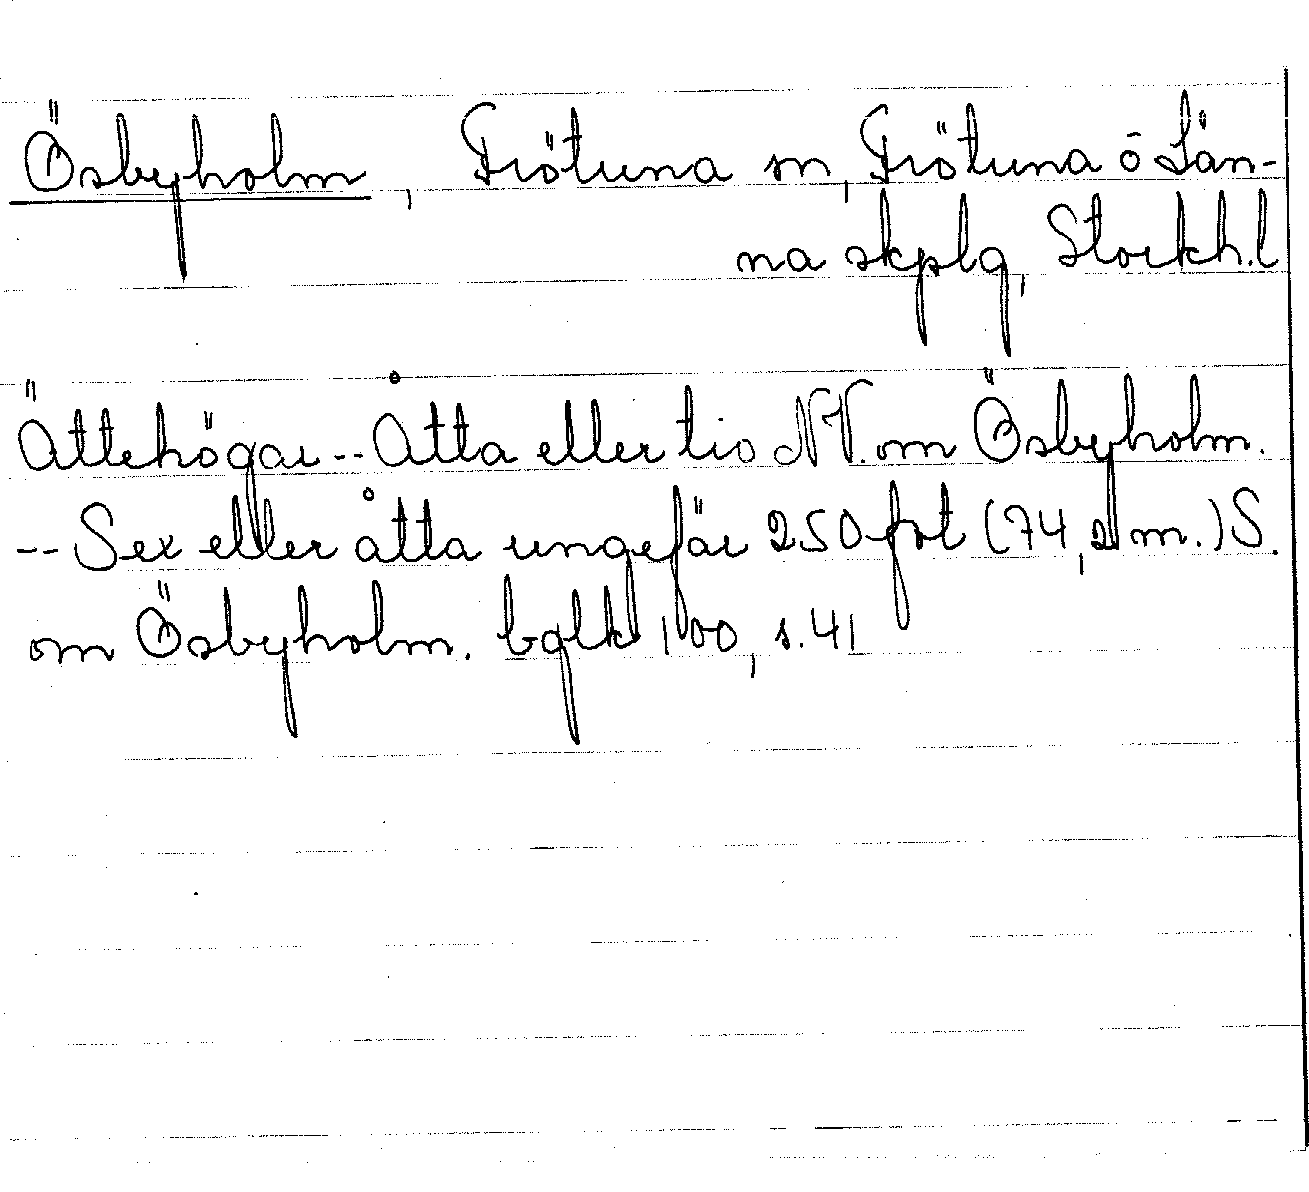 Ösbyholm, Frötuna sn, Frötuna ō Län-
na skplg, Stockh.l
Ättehögar -- Åtta eller tio NV. om Ösbyholm.
-- Sex eller åtta ungefär 250 fot (74,2 m.) S.
om Ösbyholm. bglk 100, s. 41